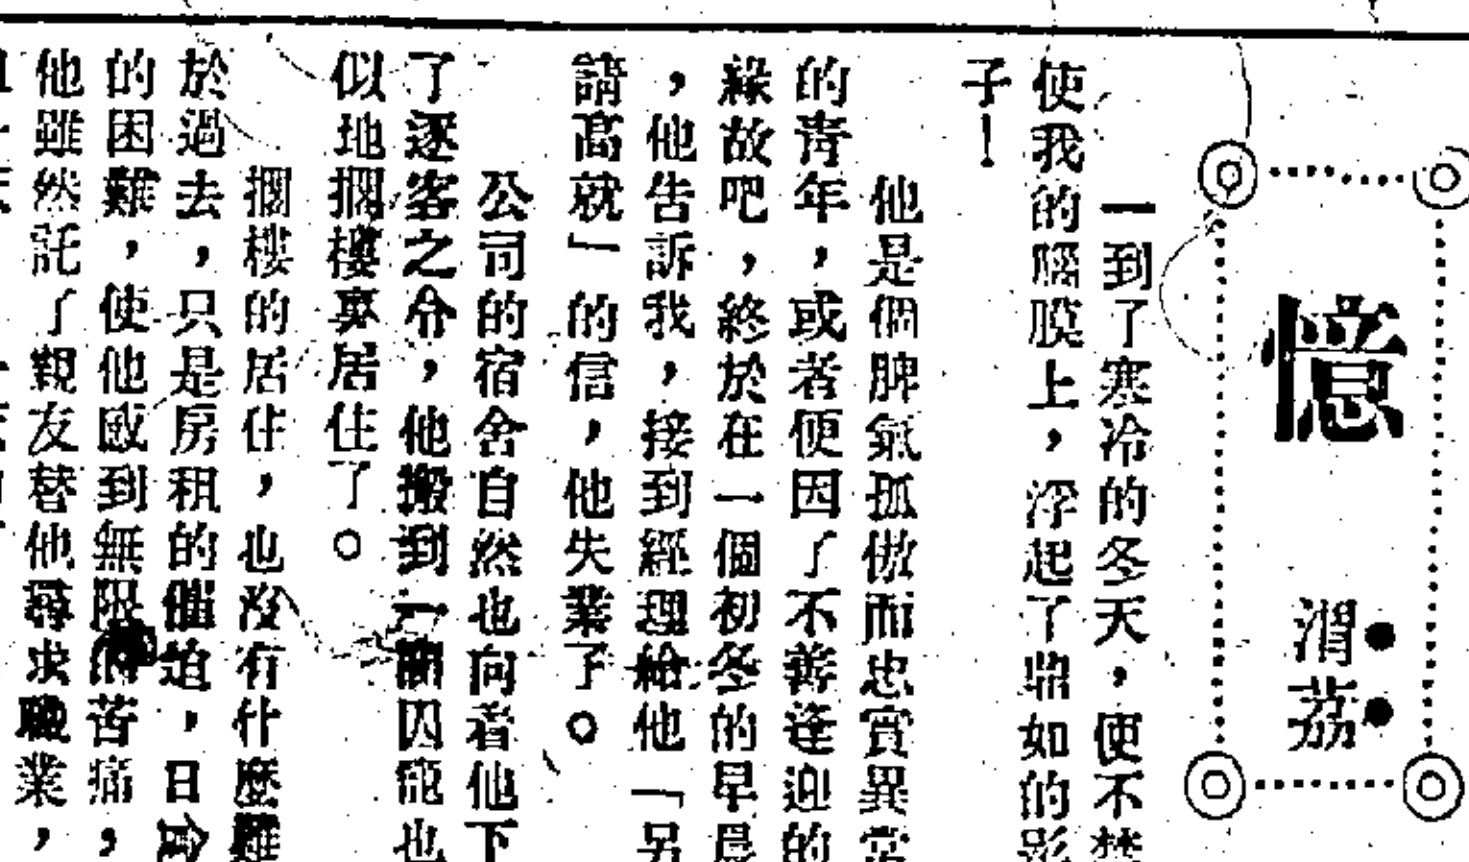 憶
渭荔
一到了寒冷的冬天，便不禁
使我的腦膜上，浮起了鼎如的影
子！
他是個脾氣孤傲而忠實異常
的青年，或者便因了不善逢迎的
緣故吧，終於在一個初冬的早晨
，他告訴我，接到經理給他「另
請高就」的信，他失業了。
公司的宿舍自然也向着他下
了逐客之令，他搬到一間囚籠也
似地擱樓裏居住了。
擱樓的居住，也沒有什麼難
於過去，只是房租的催迫，日
的困難，使他感到無限的苦痛，
他雖然託了親友替他尋求職業，